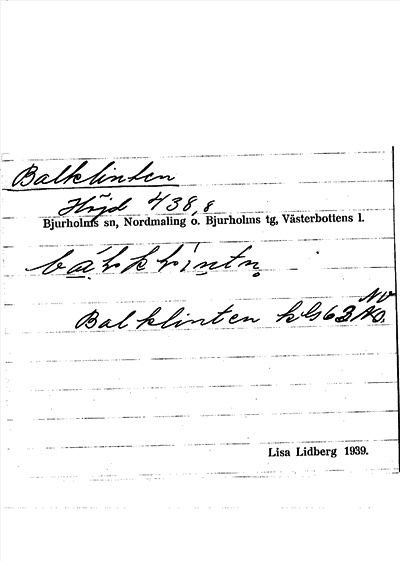 Balklinten
Höjd 438,8
Bjurholms sn, Nordmaling o. Bjurholms tg, Västerbottens l.
Balklinten kbl 63 NV
Lisa Lidberg 1939.